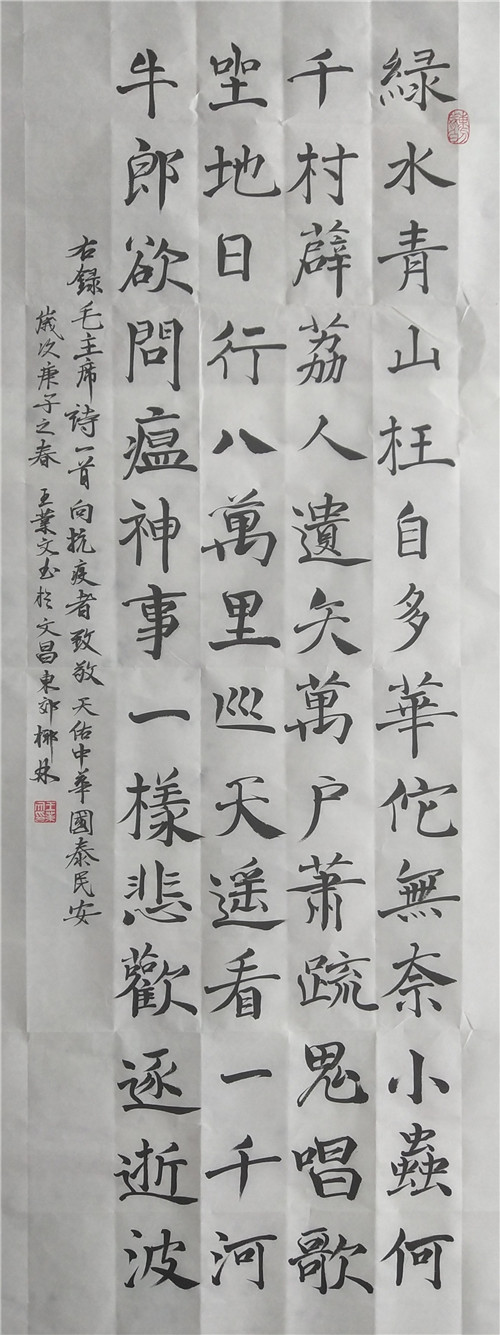 綠水青山枉自多華佗無奈小蟲何
千村薜荔人遺矢萬户蕭疏鬼唱歌
坐地日行八萬里巡天遥看一千河
牛郎欲問瘟神事一樣悲歡逐逝波
右錄毛主席詩一首向抗疫者致敬天佑中華國泰民安
歲次庚子之春王業文书於文昌東郊椰林